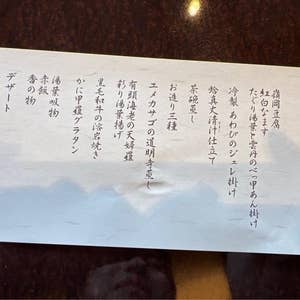 紅白なます
たぐり湯葉と雲丹のべっ甲あん掛け
冷製 あわびのジュレ掛け
蛤真丈清汁仕立て
茶碗蒸し
お造り三種
ユメカサゴの道明寺蒸し
有頭海老の天婦羅
彩り湯葉揚げ
黒毛和牛の溶岩焼き
かに甲羅グラタン
湯葉吸物
赤飯
香の物
デザート